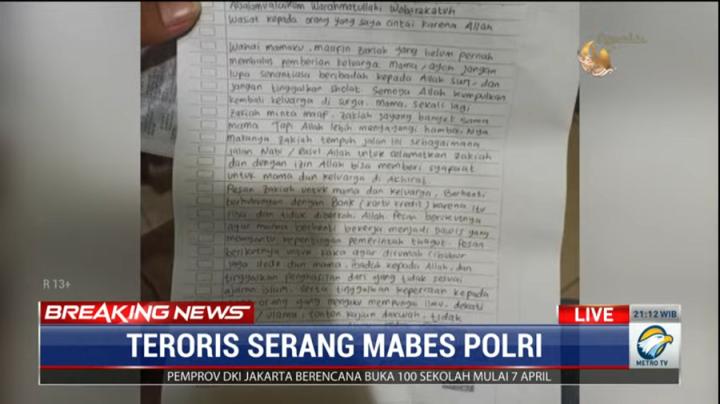 Assalamualaikum Warahmatullahi Wabarakatuh
Wasiat kepada orang yang saya cintai karena Allah
Wahai mamaku, maapin zakiah yang belum pernah
membalas pemberian keluarga. Mama / ayah jangan
lupa senantiasa beribadah kepada Allah SWT. dan
jangan tinggalkan sholat. Semoga Allah kumpulkan
kembali keluarga di surga. Mama, sekali lagi
zakiah minta maaf. zakiah sayang banget sama
mama. Tapi Allah lebih menyayangi hamba-Nya
makanya zakiah tempuh jalan ini sebagaimana
jalan Nabi / Rasul Allah untuk selamatkan zakiah
dan dengan izin Allah bisa memberi syapaat
untuk mama dan keluarga di Akhirat
Pesan zakiah untuk mama dan keluarga, Berhenti
berhubungan dengan Bank (kartu kredit) karena itu
riba dan tidak diberkahi Allah. Pesan berikutnya
agar mama berhenti bekerja menjadi dawis yang
membantu kepentingan pemerintah thogut. Pesan
berikutnya untuk kaka agar dirumah cibubur
jaga dede dan mama, ibadah kepada Allah, dan
tinggalkan penghasilan dari yang tidak sesuai
ajaran islam, serta tinggalkan kepercaan kepada
orang yang mengaku mempunyai ilmu, dekati
/ ulama, tonton kajian dakwah, tidak
R 13+
BREAKING NEWS
LIVE
21:12 WIB
TERORIS SERANG MABES POLRI
METRO TV
PEMPROV DKI JAKARTA BERENCANA BUKA 100 SEKOLAH MULAI 7 APRIL